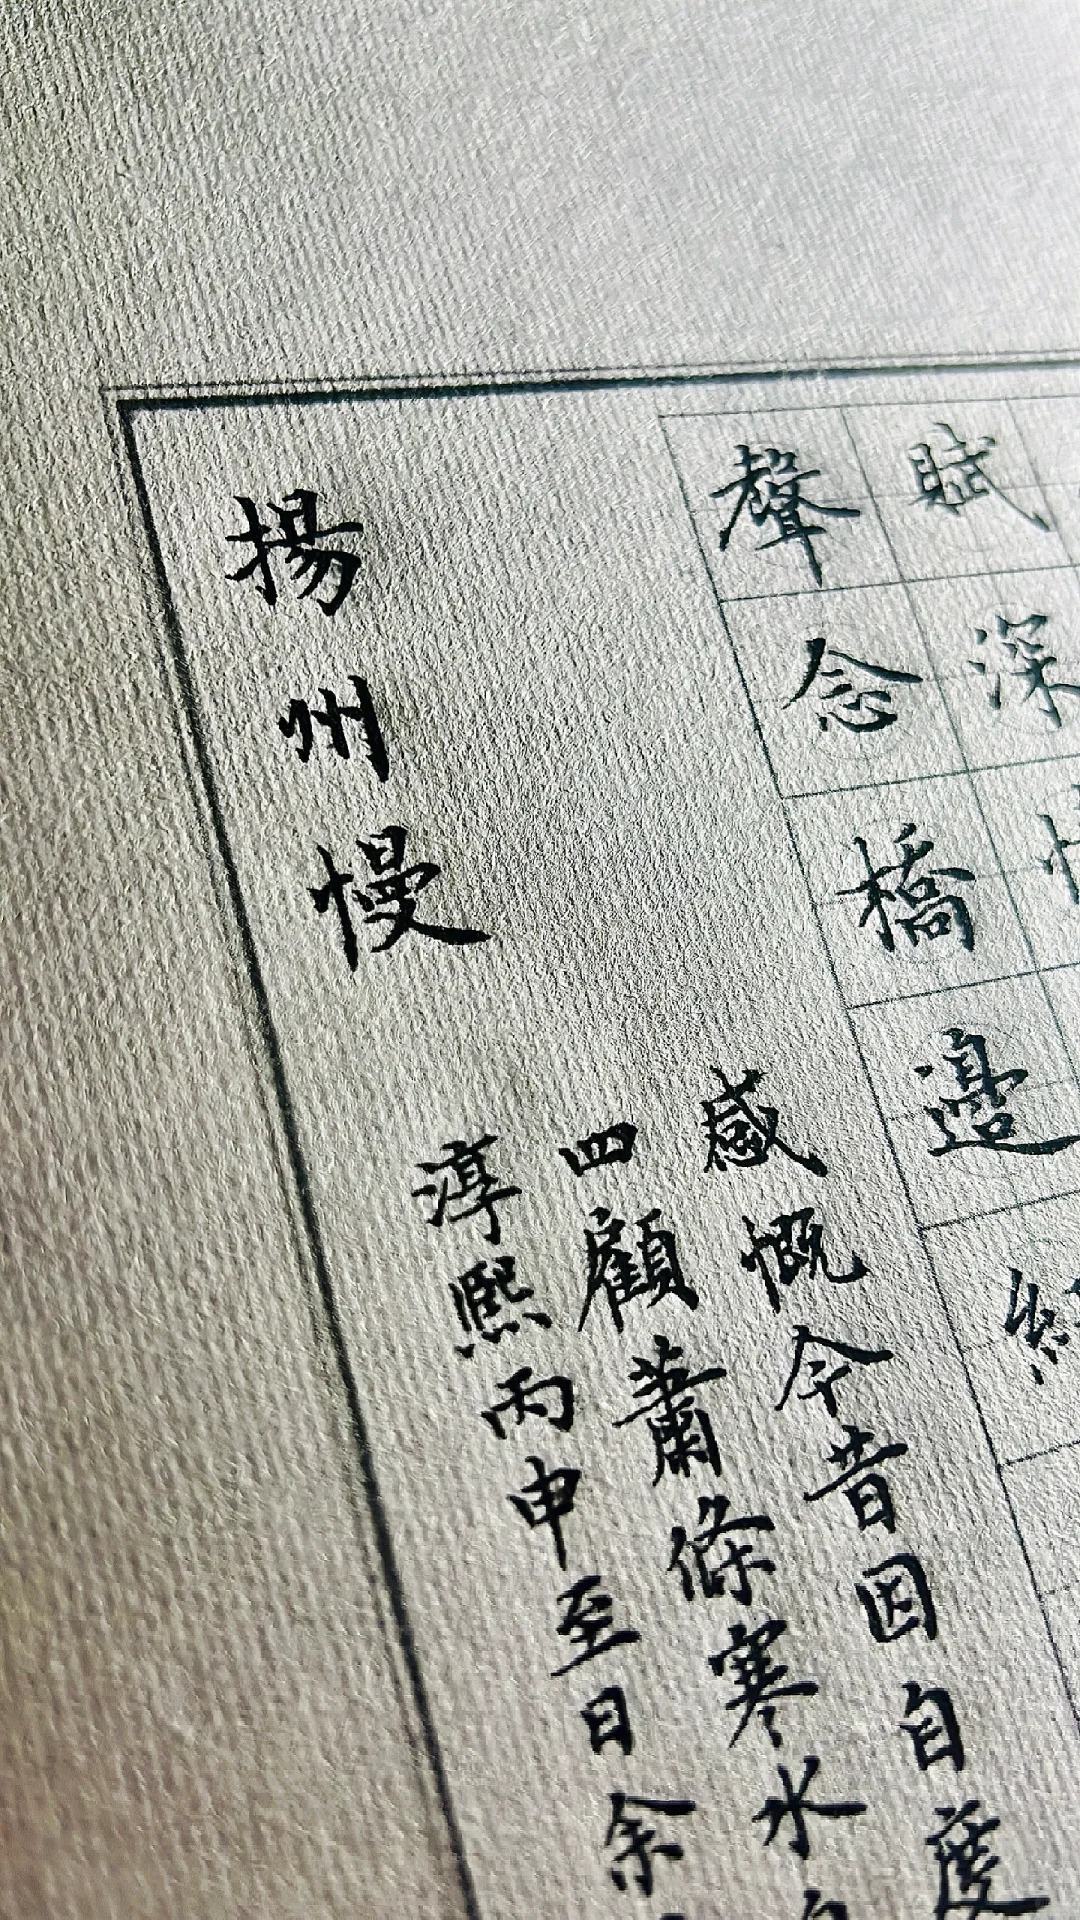 揚州慢
淳熙丙申至日余
四顧蕭條寒水
感慨今昔因自度
賦深
聲念橋邊